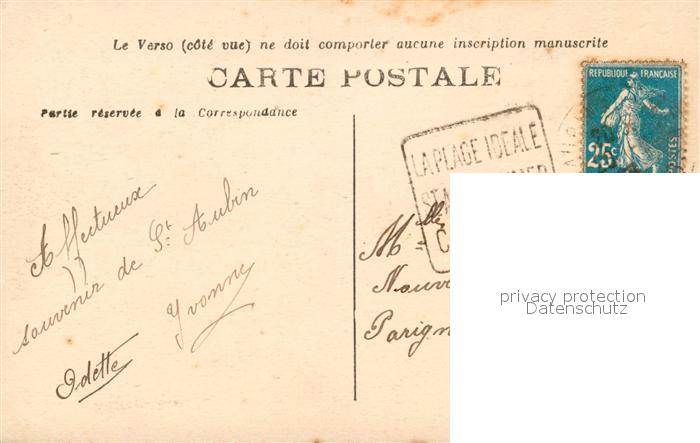 Le Verso (côté vue) ne doit comporter aucune inscription manuscrite
CARTE POSTALE
Partie réservée à la Correspondance
REPUBLIQUE FRANÇAISE
25c
POSTES
LA PLAGE IDEALE
Affectueux
souvenir de St. Aubin
Yvonne
Odette
Mlle
privacy protection
Datenschutz